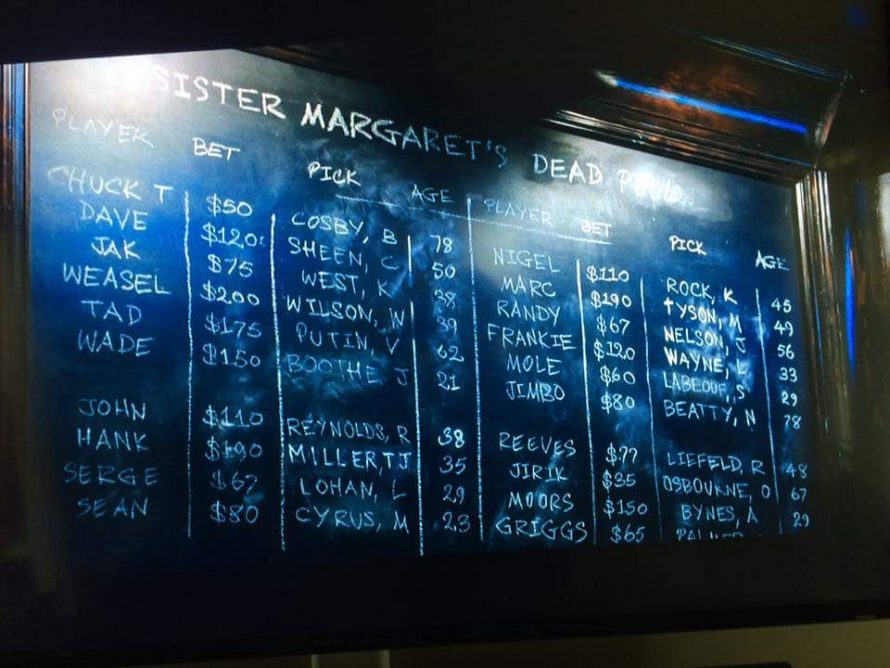 SISTER MARGARET'S DEAD POOL
PLAYER BET PICK AGE
CHUCK T $50 COSBY, B 78
DAVE $120 SHEEN, C 50
JAK $75 WEST, K 38
WEASEL $200 WILSON, W 39
TAD $175 PUTIN, V 62
WADE $150 BOOTHE J 21
JOHN $110 REYNOLDS, R 38
HANK $190 MILLER, TJ 35
SERGE $67 LOHAN, L 29
SEAN $80 CYRUS, M 23
PLAYER BET PICK AGE
NIGEL $110 ROCK, K 45
MARC $190 TYSON, M 49
RANDY $67 NELSON, J 56
FRANKIE $120 WAYNE, L 33
MOLE $60 LABEOUF, S 29
JIMBO $80 BEATTY, N 78
REEVES $77 LIEFELD, R 48
JIRIK $35 OSBOURNE, O 67
MOORS $150 BYNES, A 29
GRIGGS $65